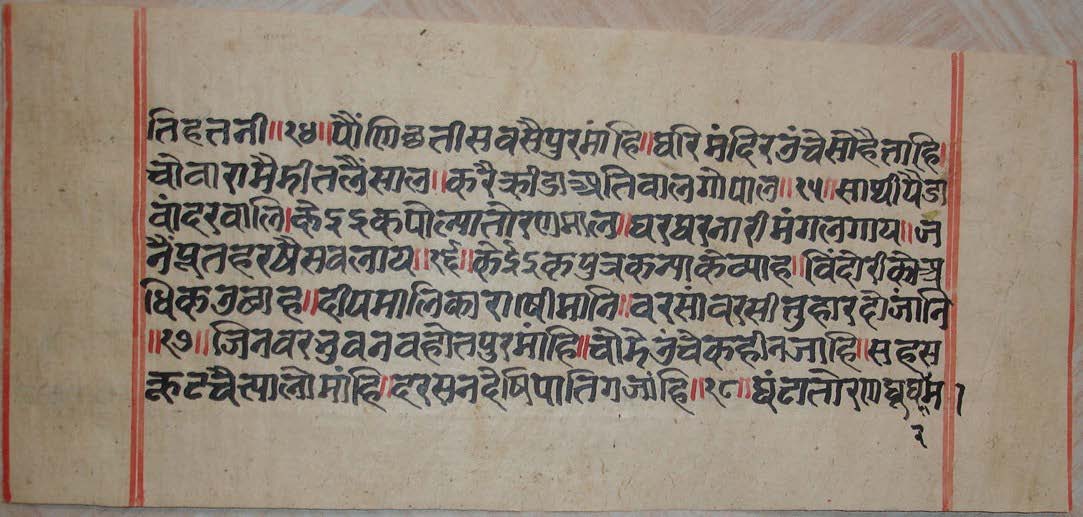 तिहतनी॥१४॥पौंणिछतीसवसैपुरमांहि॥घरिमंदिरउंचैसोहैताहि।
चौवारामैडीतलैंसाल॥करैक्रीडाअतिबालगोपाल॥१५॥साथीपैडा
वांदरवालि।केइइकपोल्यातोरणमाल॥घरघरनारीमंगलगाय॥ज
नैंपूतहरषैसवलाय॥१६॥केइइकपुत्रकन्याकेव्याह॥विंदोरीकोअ
धिकउछाह॥दीपमालिकाराषीमानि॥वरसांवरसीत्तुहारहोजानि
॥१७॥जिनवरभुवनवहोतपुरमांहि॥चौमैउंचेकहीनजाहि॥सहस
कूटचैत्यालोमांहि।दरसनदेषिपातिगजांहि॥१८॥घंटातोरणघूघम
२